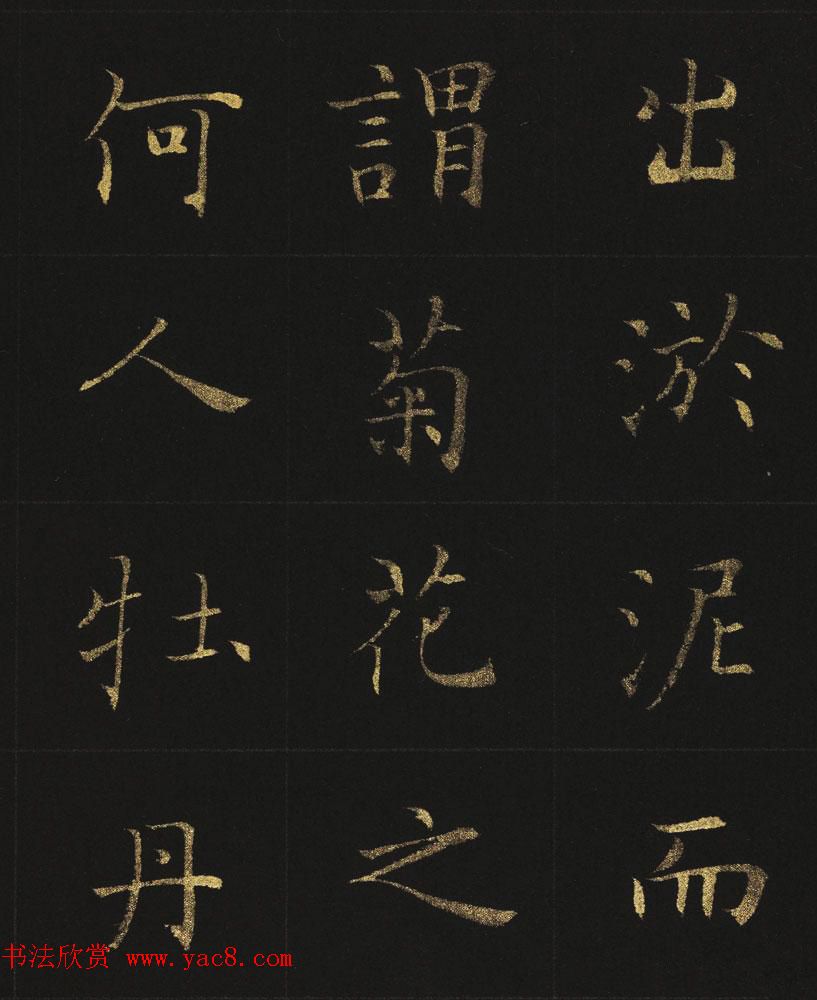 出淤泥而
謂菊花之
何人牡丹
书法欣赏 www.yac8.com